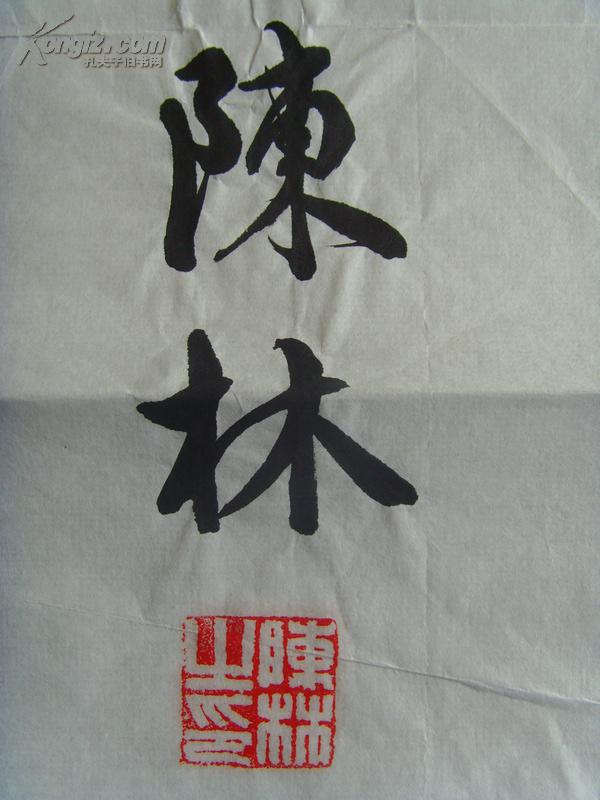 Kongfz.com
孔夫子旧书网
陳
林
陳林
之印